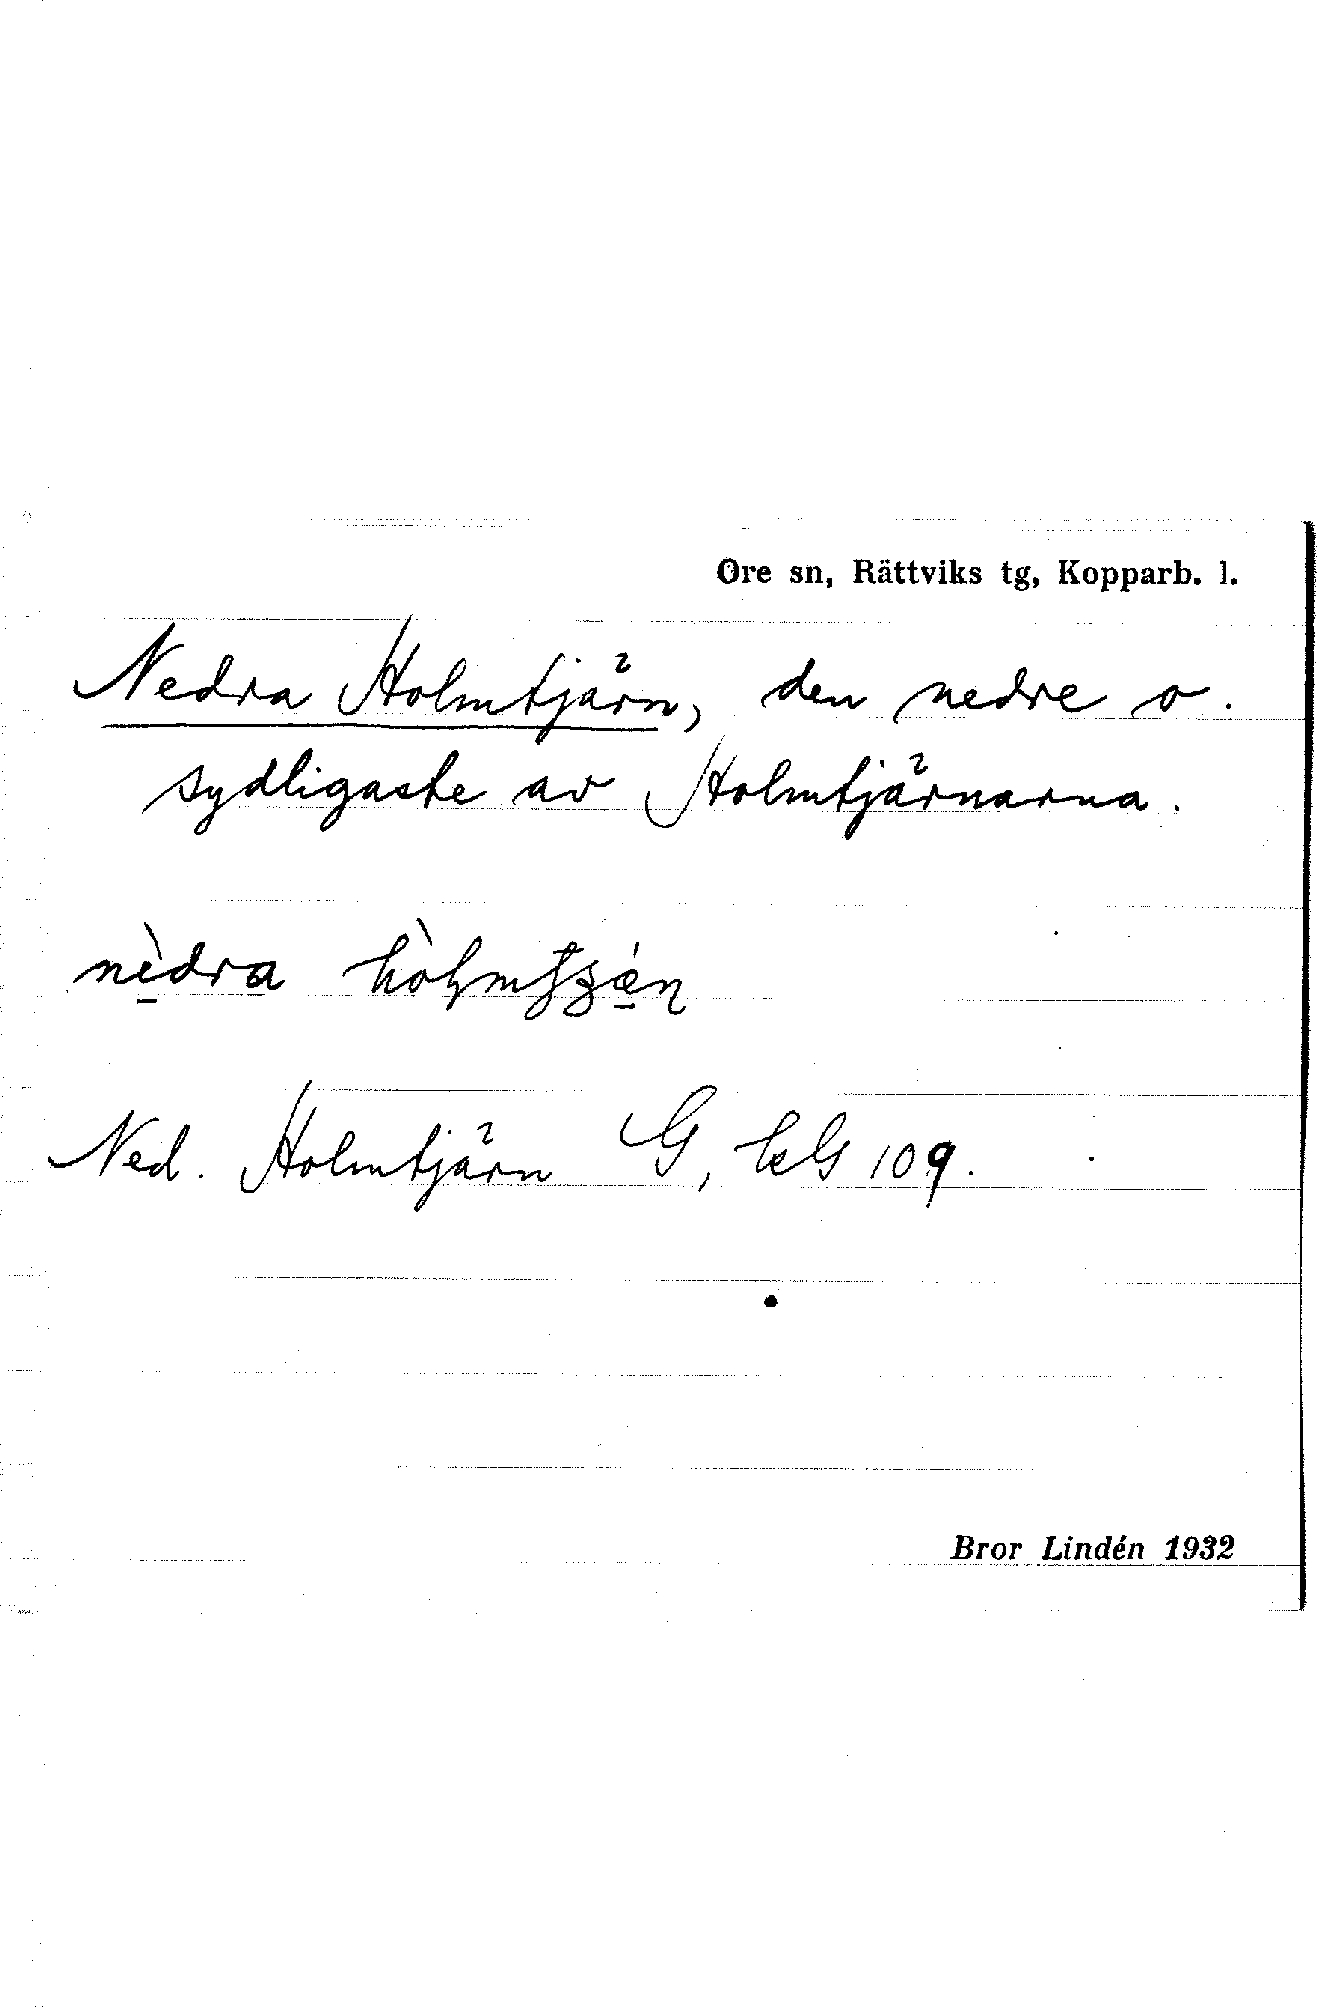 Ore sn, Rättviks tg, Kopparb. l.
Nedra Holmtjärn, den nedre o.
sydligaste av Holmtjärnarna.
nèdra
Ned. Holmtjärn G, kG 109.
Bror Lindén 1932